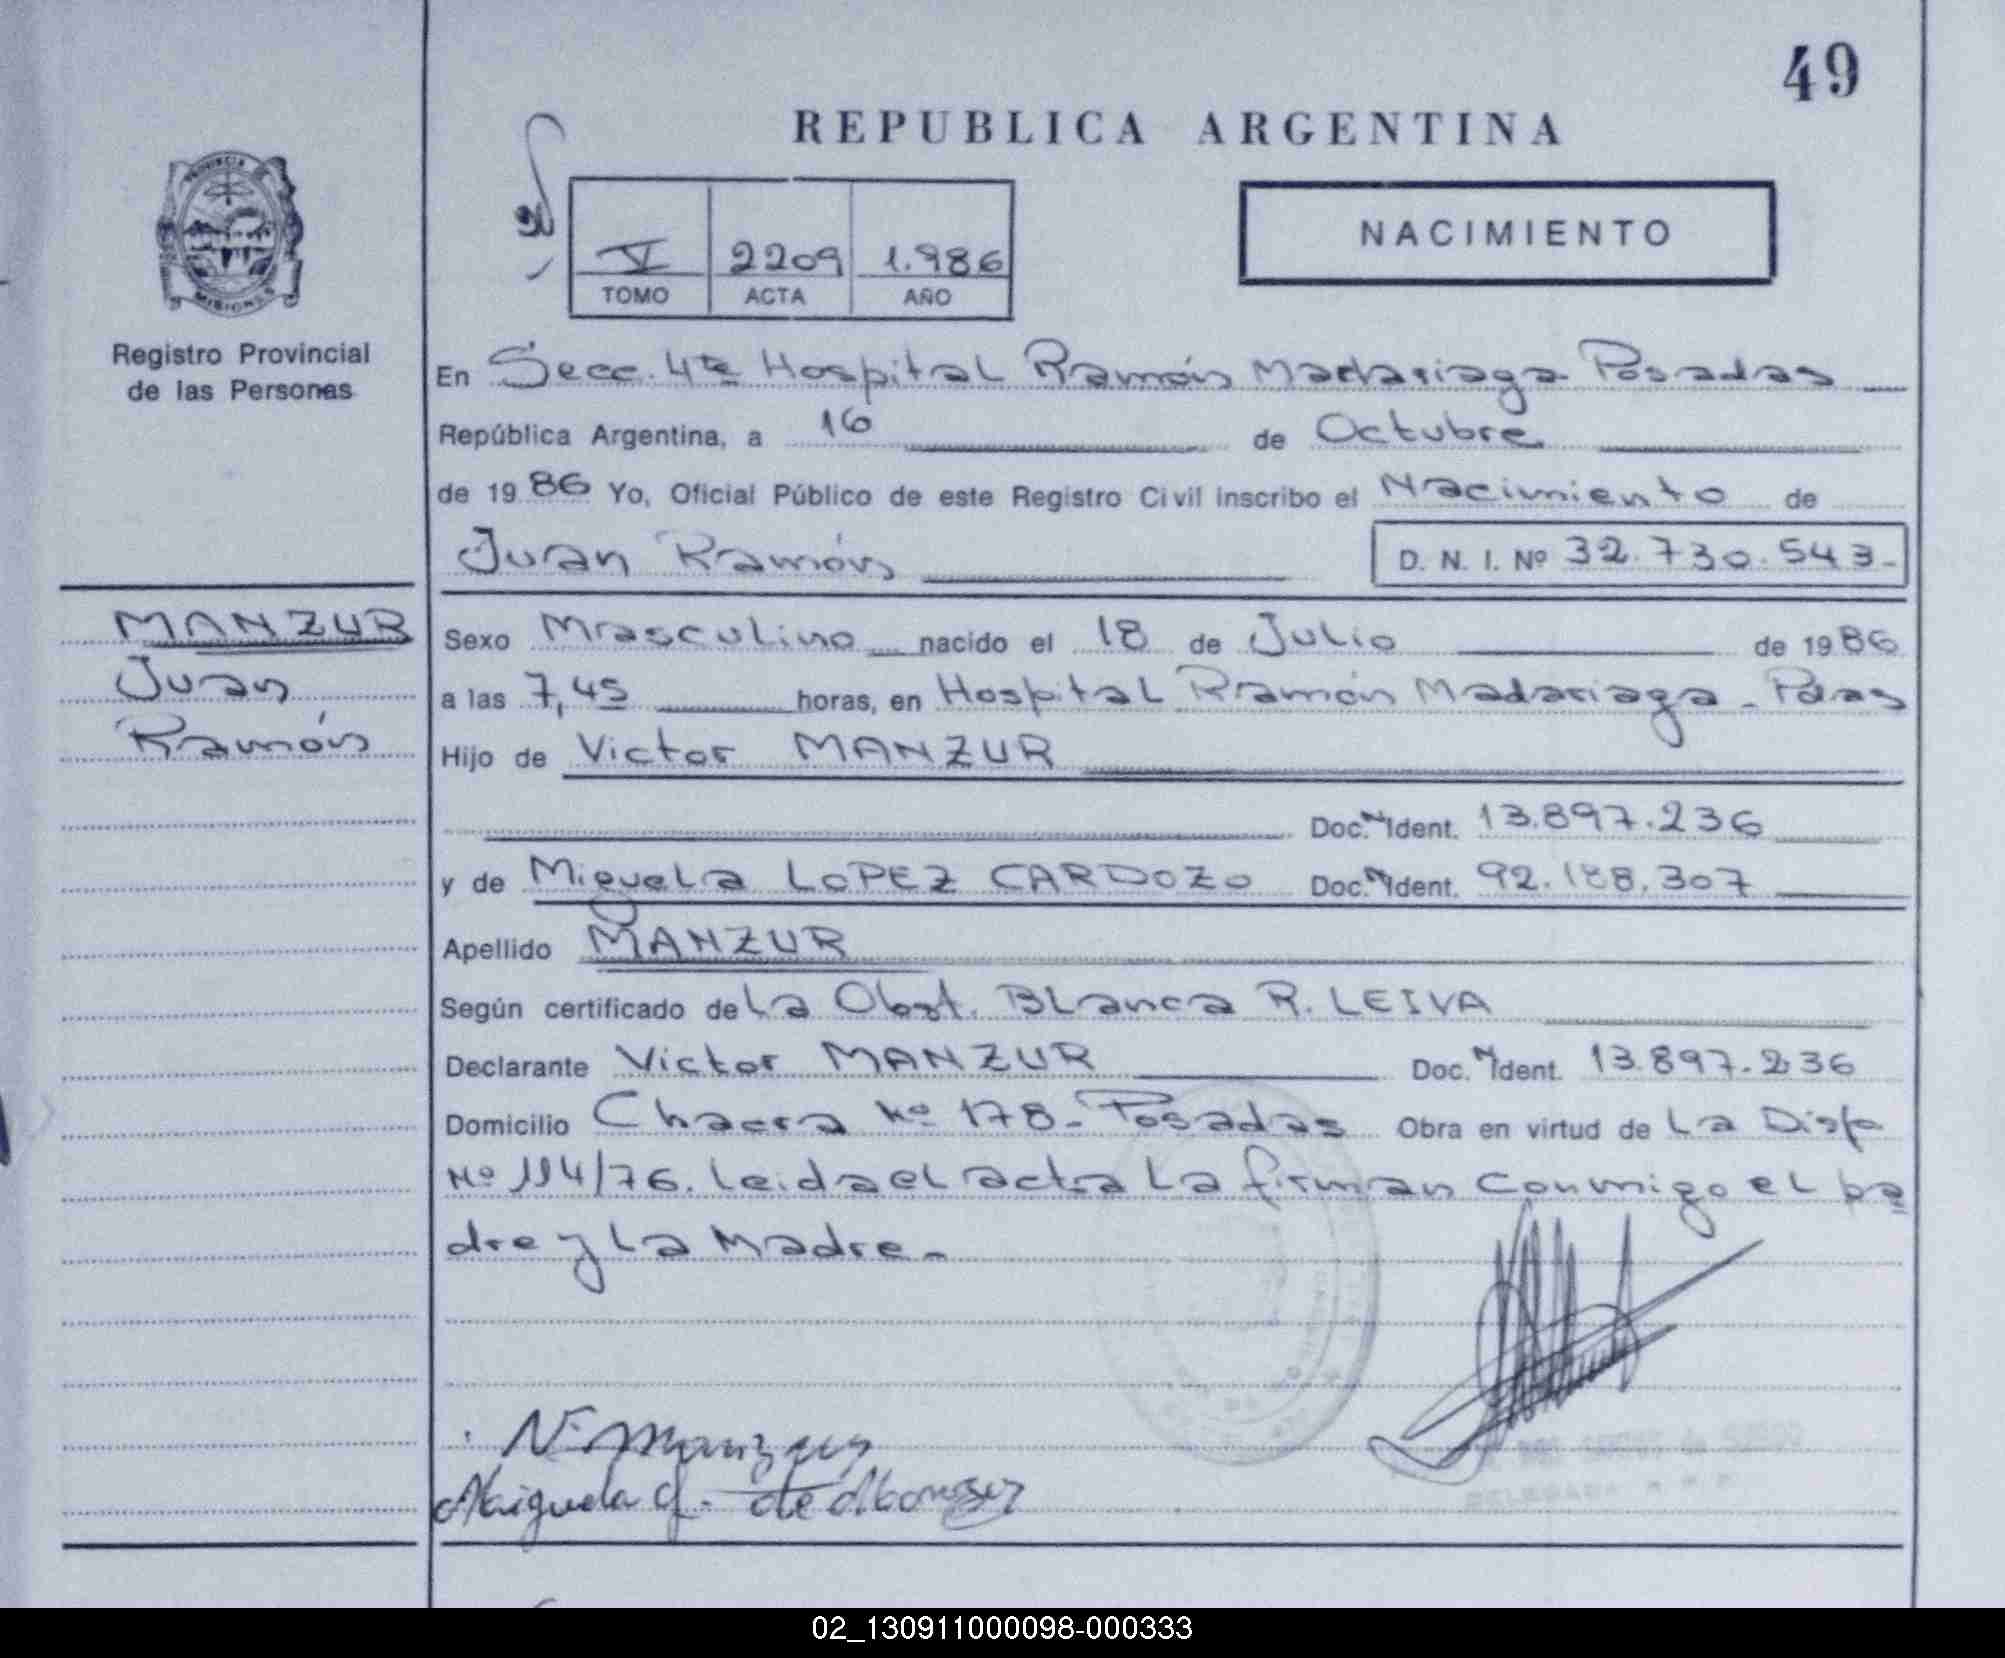 49
REPUBLICA ARGENTINA
PROVINCIA DE
MISIONES
V 2209 1.986
TOMO ACTA AÑO
NACIMIENTO
Registro Provincial
de las Personas
En Secc. 4ta Hospital Ramón Madariaga Posadas
República Argentina, a 16 de Octubre
de 1986 Yo, Oficial Público de este Registro Civil inscribo el Nacimiento de
Juan Ramón D. N. I. Nº 32.730.543-
MANZUR
Juan
Ramón
Sexo Masculino nacido el 18 de Julio de 1986
a las 7,45 horas, en Hospital Ramón Madariaga - Pdas
Hijo de Victor MANZUR
Doc. N Ident. 13.897.236
y de Miguela LOPEZ CARDOZO Doc. N Ident. 92.188.307
Apellido MANZUR
Según certificado de La Obst. Blanca R. LEIVA
Declarante Victor MANZUR Doc. N Ident. 13.897.236
Domicilio Chacra Nº 178 - Posadas Obra en virtud de La Disp
Nº 114/76. Leida el acta La firman conmigo el pa
dre y La Madre.-
Manzur
Miguela de Manzur
02_130911000098-000333